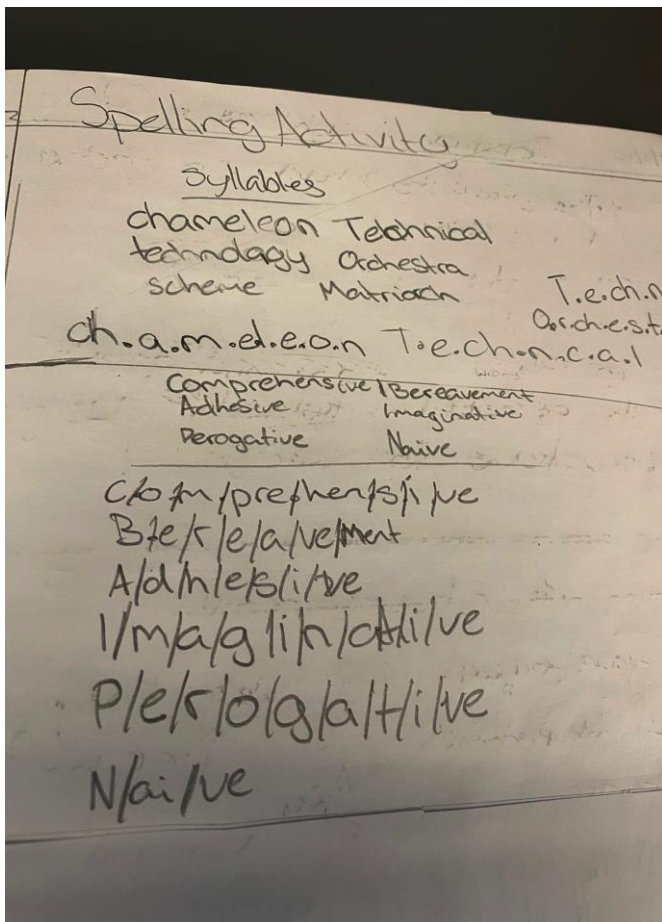 Spelling Activity
Syllables
chameleon Technical
technology Orchestra
scheme Matriach
T.e.ch.n
O.r.ch.e.s.t.
ch.a.m.el.e.o.n T.e.ch.n.c.a.l
Wrong
Comprehensive / Bereavement
Adhesive Imaginative
Perogative Naive
C/o/m/pre/hen/s/i/ve
B/e/r/e/a/ve/ment
A/d/h/e/s/i/ve
I/m/a/g/i/n/at/i/ve
P/e/r/o/g/a/t/i/ve
N/ai/ve